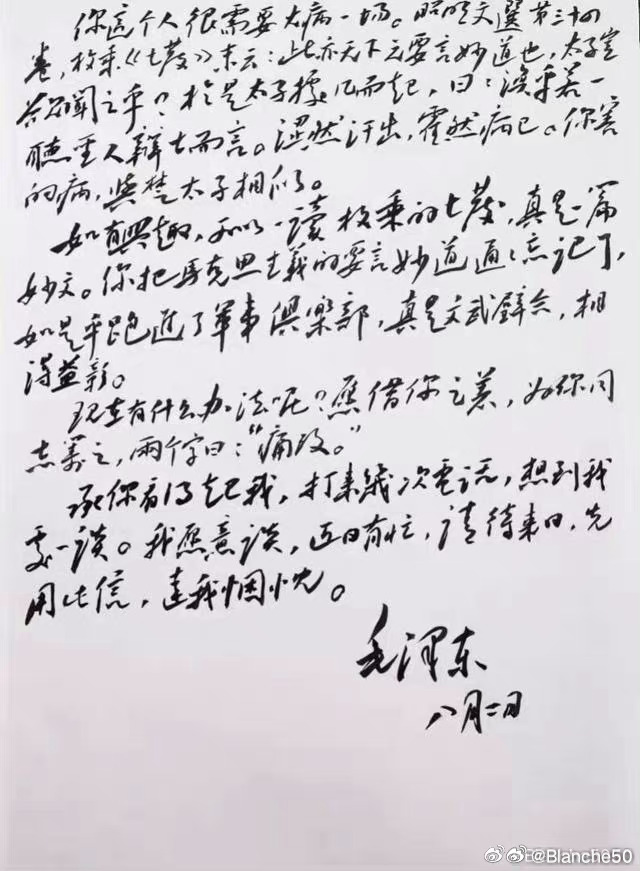 你這个人很需要大病一场。昭明文選第三十四
卷，枚乘《七發》末云：此亦天下之要言妙道也，太子豈
欲聞之乎？於是太子據几而起，曰：渙乎若一
聽聖人辯士之言。涊然汗出，霍然病已。你害
的病，與楚太子相似。
如有興趣，可以一读枚乘的七發，真是一篇
妙文。你把馬克思主義的要言妙道通通忘記了，
如是乎跑進了軍事俱樂部，真是文武璧合，相
得益彰。
现在有什么办法呢？愿借你之箸，为你同
志筹之，兩个字曰：“痛改。”
承你看得起我，打来幾次電话，想到我
處一谈。我愿意谈，近日有忙，请待来日，先
用此信，達我悃忱。
毛泽东
八月二日
@Blanche50